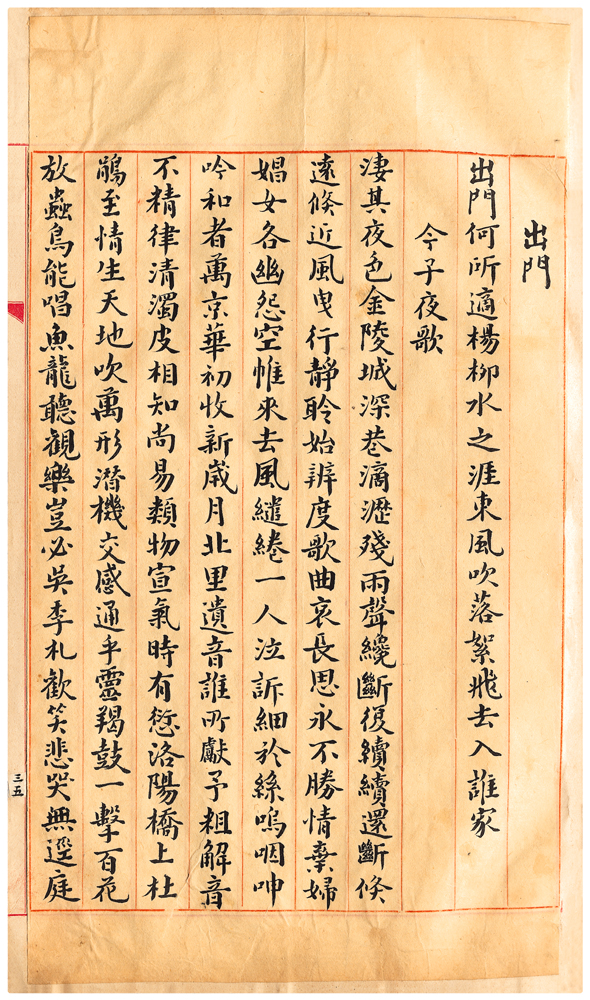 出門
出門何所適楊柳水之涯東風吹落絮飛去入誰家
今子夜歌
淒其夜色金陵城深巷滴瀝殘雨聲纔斷復續續還斷倏
遠倏近風曳行靜聆始辨度歌曲哀長思永不勝情棄婦
娼女各幽怨空帷來去風繾綣一人泣訴細於絲嗚咽呻
吟和者萬京華初收新歲月北里遺音誰所獻予粗解音
不精律清濁皮相知尚易類物宣氣時有愆洛陽橋上杜
鵑至情生天地吹萬形潛機交感通乎靈羯鼓一擊百花
放蟲鳥能唱魚龍聽觀樂豈必吳季札歡笑悲哭無逕庭
三五